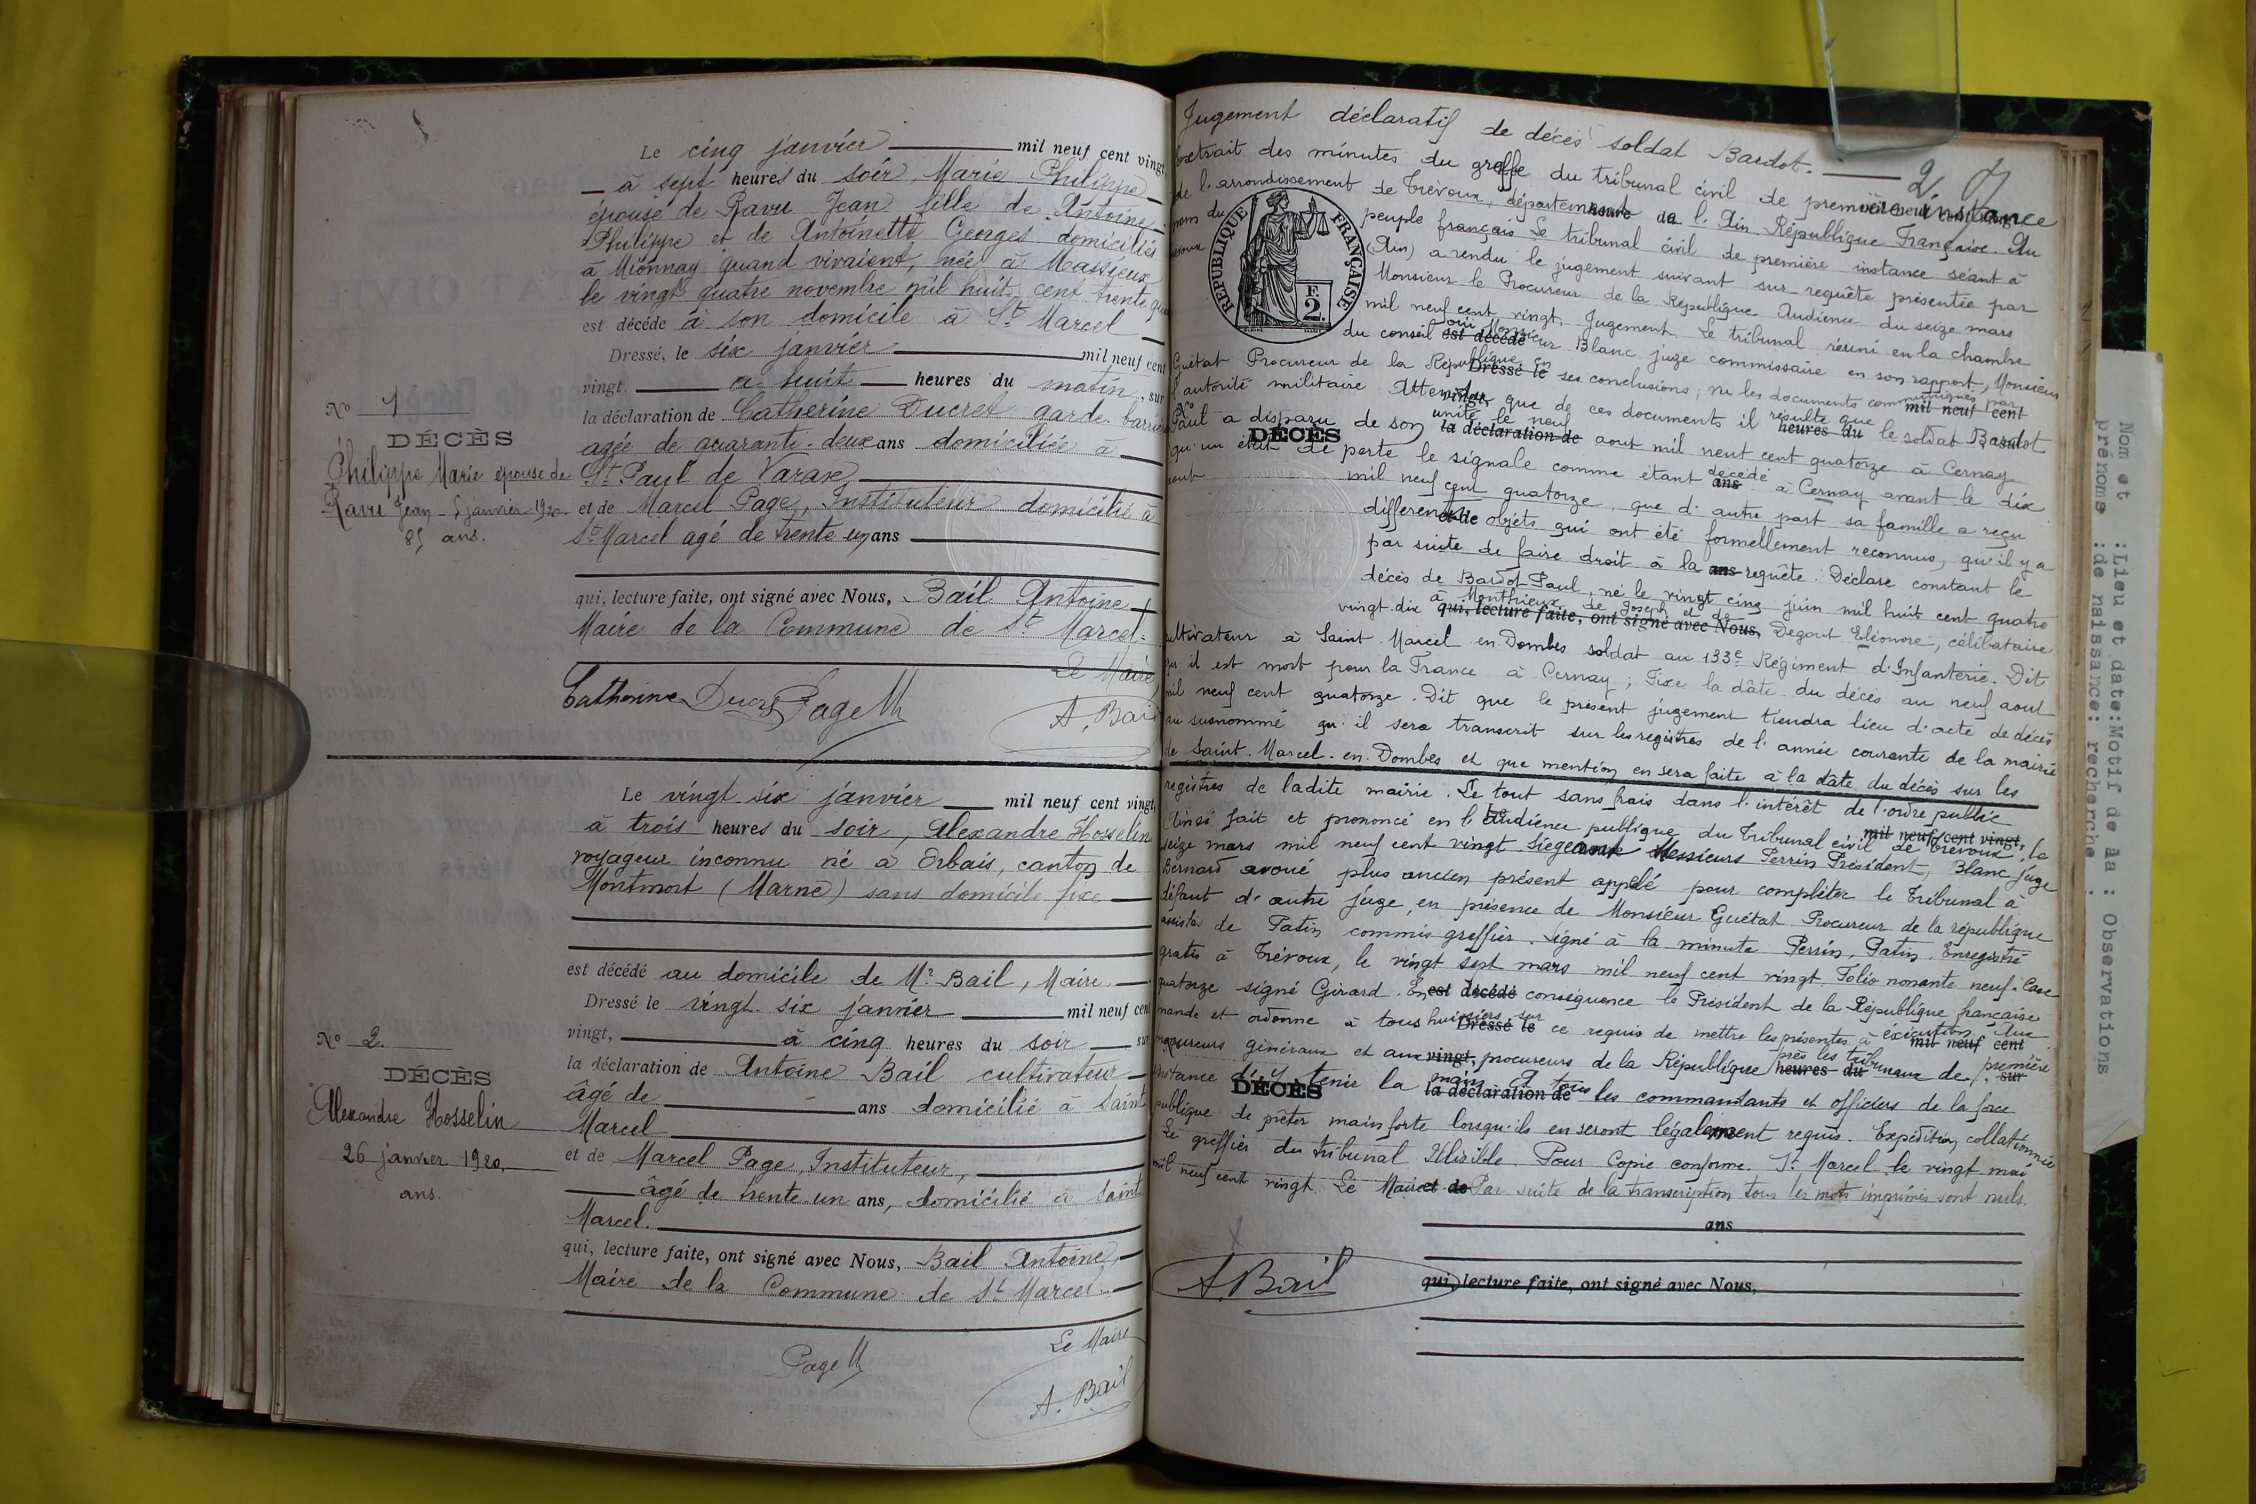 Le cinq janvier mil neuf cent vingt,
à sept heures du soir, Marie Philippe
épouse de Ravu Jean fille de Antoine
Philippe et de Antoinette Georges domiciliés
à Mionnay quand vivaient, née à Massieux
le vingt quatre novembre mil huit cent trente
est décédé à son domicile à St Marcel
Dressé, le six janvier mil neuf cent
vingt. à huit heures du matin, sur
la déclaration de Catherine Ducret garde-barrière
agée de quarante-deux ans domiciliée à
St Paul de Varax
et de Marcel Page, Instituteur domicilié à
St Marcel agé de trente un ans
qui, lecture faite, ont signé avec Nous, Bail Antoine
Maire de la Commune de St Marcel.
Le Maire,
Catherine Ducret Page M
A. Bail
No 1
DÉCÈS
Philippe Marie épouse de
Ravu Jean - 5 janvier 1920
85 ans.
Le vingt-six janvier mil neuf cent vingt,
à trois heures du soir, Alexandre Hosselin
voyageur inconnu né à Orbais, canton de
Montmort (Marne) sans domicile fixe
est décédé au domicile de Mr Bail, Maire
Dressé le vingt-six janvier mil neuf cent
vingt, à cinq heures du soir sur
la déclaration de Antoine Bail cultivateur
âgé de ans domicilié à Saint
Marcel
et de Marcel Page, Instituteur,
âgé de trente un ans, domicilié à Saint
Marcel.
qui, lecture faite, ont signé avec Nous, Bail Antoine,
Maire de la Commune de St Marcel.
Page M
Le Maire
A. Bail
No 2.
DÉCÈS
Alexandre Hosselin
26 janvier 1920.
ans.
Jugement déclaratif de décès soldat Bardot. 2
Extrait des minutes du greffe du tribunal civil de première instance
de l'arrondissement de Trévoux, département de l'Ain République Française. Au
nom du peuple français Le tribunal civil de première instance séant à
Trévoux (Ain) a rendu le jugement suivant sur requête présentée par
Monsieur le Procureur de la République Audience du seize mars
mil neuf cent vingt. Jugement. Le tribunal réuni en la chambre
du conseil est décédé oui Monsieur Blanc juge commissaire en son rapport, Monsieur
Guétat Procureur de la République en Dressé le ses conclusions, vu les documents communiqués par
l'autorité militaire Attendu vingt, que de ces documents il résulte que mil neuf cent
No Paul a disparu de son unité le neuf la déclaration de aout mil neuf cent quatorze à Cernay heures du le soldat Bardot
DÉCÈS
qu'un état de perte le signale comme étant décédé ans à Cernay avant le dix
aout mil neuf cent quatorze, que d'autre part sa famille a reçu
différents et de objets qui ont été formellement reconnus, qu'il y a
par suite de faire droit à la ans requête : Déclare constant le
décès de Bardot Paul, né le vingt cinq juin mil huit cent quatre
vingt-dix à Monthieux de Joseph et de qui, lecture faite, ont signé avec Nous, Degout Eléonore, célibataire
cultivateur à Saint-Marcel en Dombes soldat au 133e Régiment d'Infanterie. Dit
qu'il est mort pour la France à Cernay ; Fixe la dâte du décès au neuf aout
mil neuf cent quatorze. Dit que le présent jugement tiendra lieu d'acte de décès
au susnommé qu'il sera transcrit sur les registres de l'année courante de la mairie
de Saint-Marcel-en-Dombes et que mention en sera faite à la date du décès sur les
registres de ladite mairie. Le tout sans frais dans l'intérêt de l'ordre public
Ainsi fait et prononcé en l'audience publique du Tribunal civil de Trévoux, le mil neuf cent vingt,
seize mars mil neuf cent vingt Siégeant Messieurs Perrin Président, Blanc juge
Bernard avoué plus ancien présent appelé pour compléter le Tribunal à
défaut d'autre juge, en présence de Monsieur Guétat Procureur de la république
assistés de Patin commis greffier. Signé à la minute Perrin, Patin. Enregistré
gratis à Trévoux, le vingt sept mars mil neuf cent vingt. Folio nonante neuf. Case
quatorze signé Girard. En est décédé conséquence le Président de la République française
mande et ordonne à tous huissiers sur Dressé le ce requis de mettre les présentes à exécution Aux mil neuf cent
procureurs généraux et aux vingt, procureurs de la République près les tribunaux heures du de première sur
instance d'y tenir la main à tous la déclaration de les commandants et officiers de la force
DÉCÈS
publique de prêter main forte lorsqu'ils en seront légalement requis. Expédition collationnée
Le greffier du tribunal Illisible. Pour Copie conforme. St Marcel le vingt mai
mil neuf cent vingt. Le Maire et de Par suite de la transcription tous les mots imprimés sont nuls.
ans
A. Bail
qui, lecture faite, ont signé avec Nous,
RÉPUBLIQUE FRANÇAISE
F.
2.
Nom et :Lieu et date:Motif de la : Observations
prénoms :de naissance: recherche :